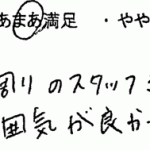 あまあ満足 ・やや
割りのスタッフ
囲気が良か